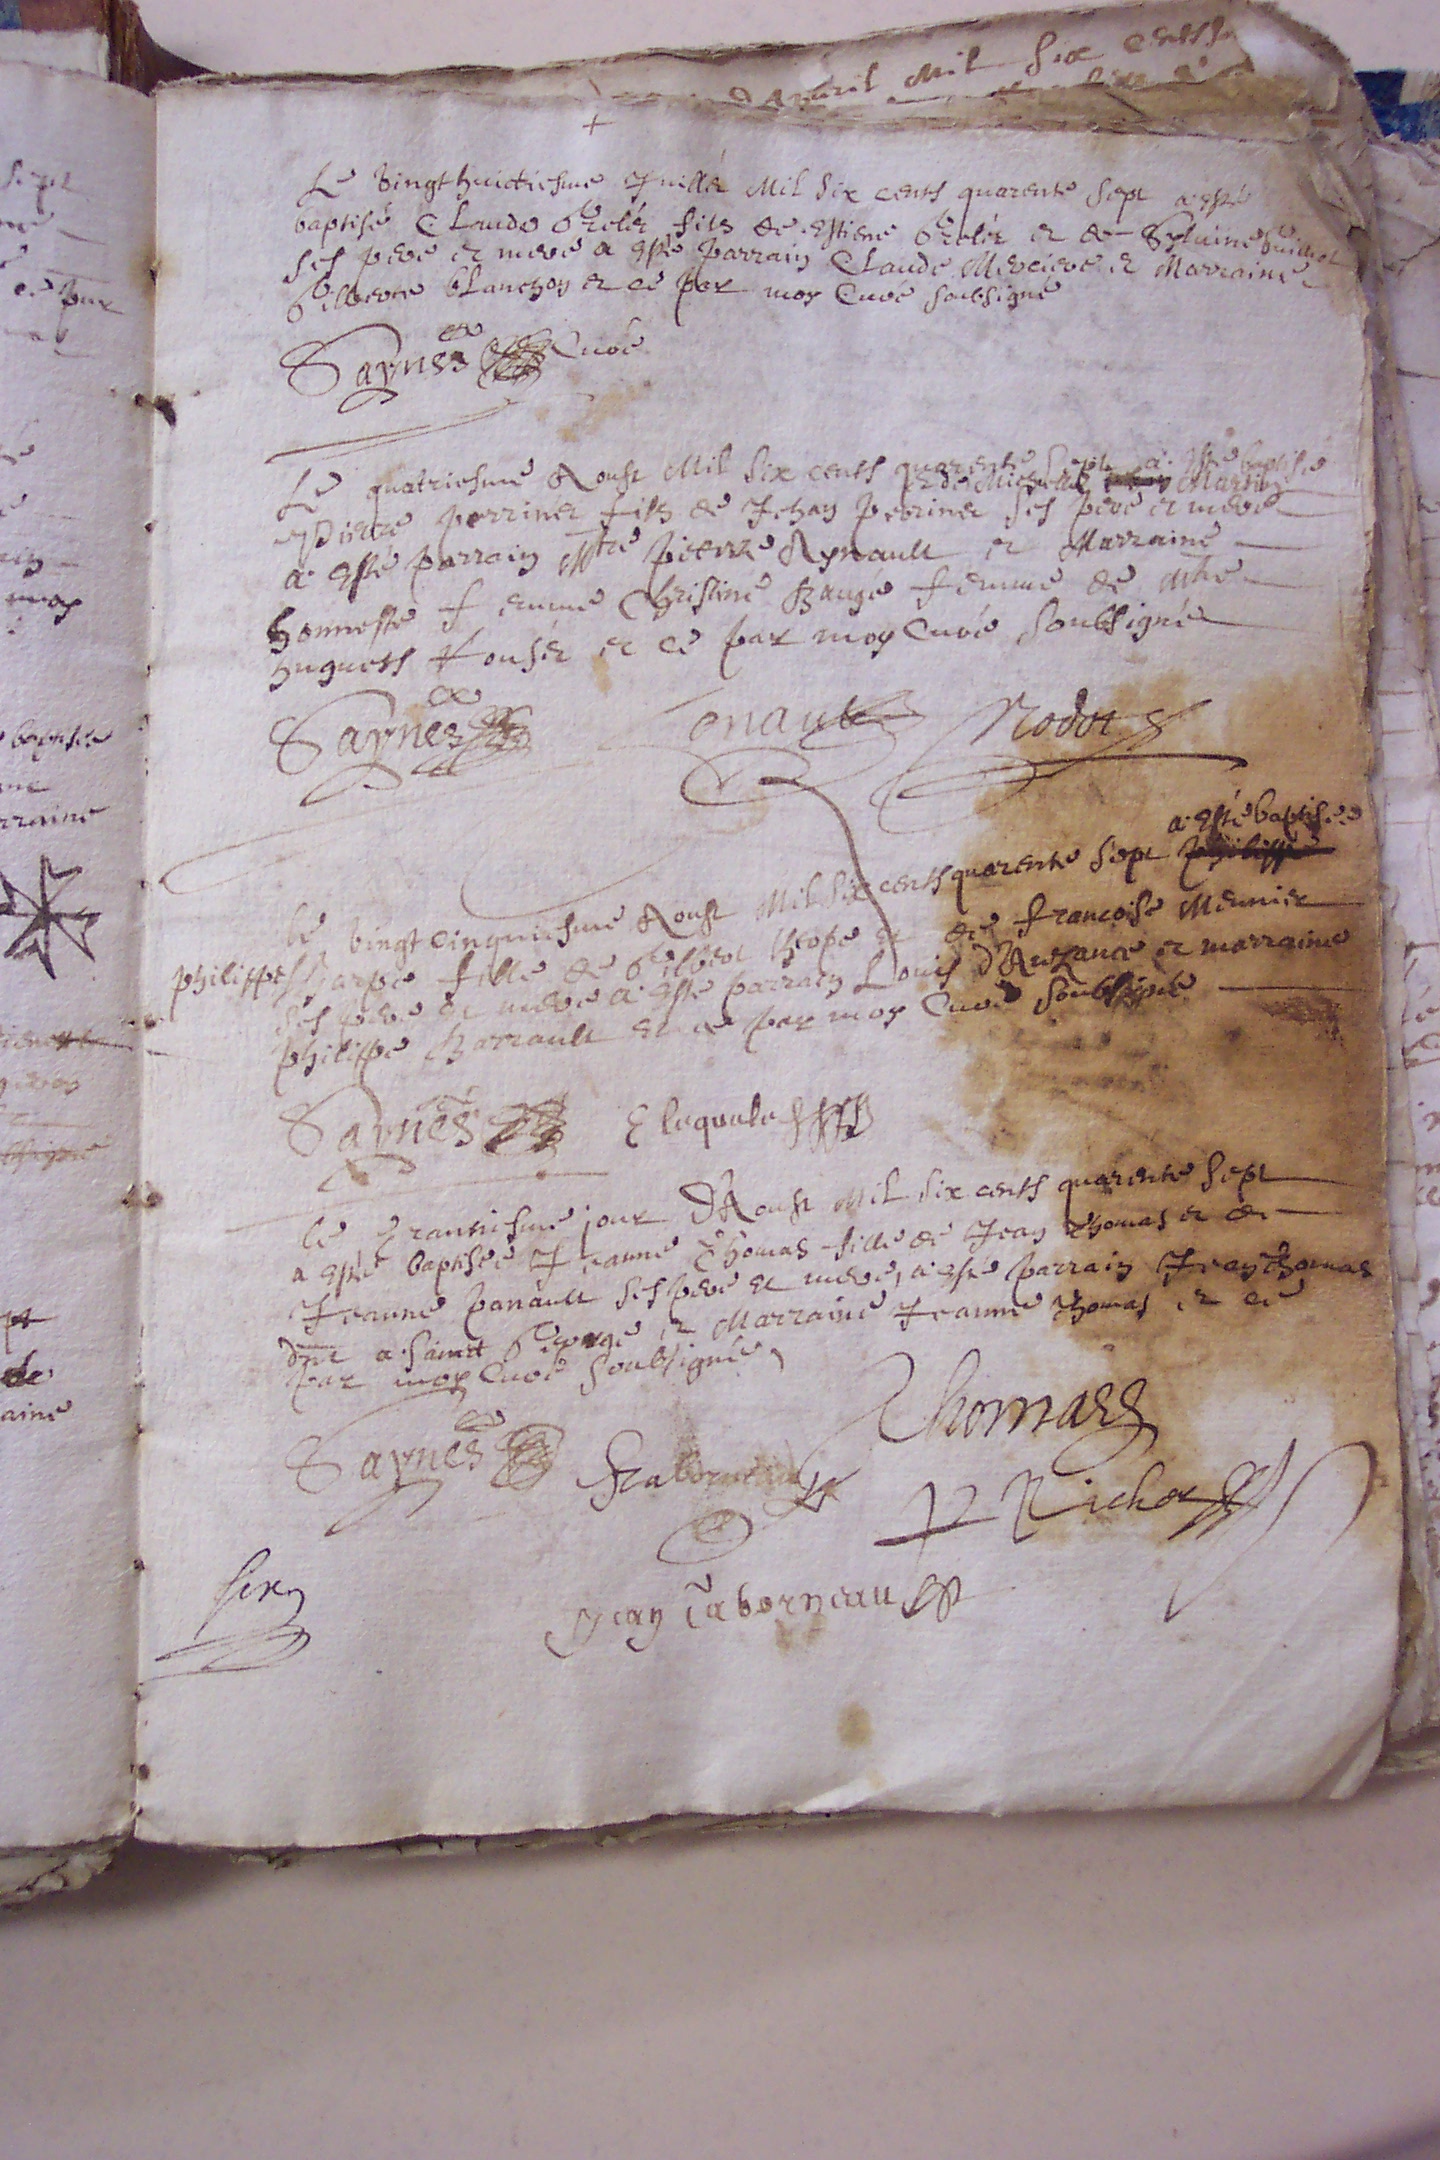 D'Apvril Mil Six Cents
Le vingthuictiesme Juillet Mil Six cents quarente Sept a esté
baptisé Claude Grelét fils de Estiene Grelét et de Sylvaine
Ses pere et mere a esté parrain Claude Merciere et Marraine
Gilberte blanchon et ce par moy Curé soubsigné
Saynes Curé
Le quatriesme Aoust Mil Six cents quarente Sept a esté baptisé
et de Michelle Martin
Pierre perrinet fils de Jehan perrinet Ses pere et mere
a esté parrain Mtre pierre Aynault et Marraine
honneste femme Christine Baugé femme de Mtre
hugues et ce par moy Curé soubsigné
Saynes Nodot
a esté baptisée
Le vingt cinquiesme Aoust Mil Six cents quarente Sept philippe
philippe fille de Gilbert et de francoise Meunier
Ses pere et mere a esté parrain Louis d'Auzance et marraine
philippe Barrault et ce par moy Curé soubsigné
Saynes
Le trantiesme jour D'Aoust Mil Six cents quarente Sept
a esté baptisée Jeanne Thomas fille de Jean Thomas et de
Jeanne panault Ses pere et mere, a esté parrain Jean Thomas
dmt a Sainct George et Marraine Jeanne Thomas et ce
par moy Curé soubsigné,
Thomas
Saynes Taborneau
P Richer
Jean Taborneau